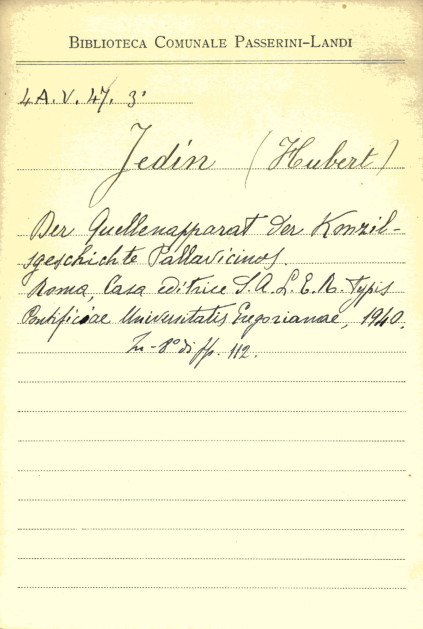 BIBLIOTECA COMUNALE PASSERINI-LANDI
4 A. V. 47. 3°
Jedin (Hubert)
Der Quellenapparat der Konzil-
sgeschichte Pallavicinos.
Roma, Casa editrice S.A.L.E.R. typis
Pontificiae Universitatis Gregorianae, 1940.
In-8° di pp. 112.